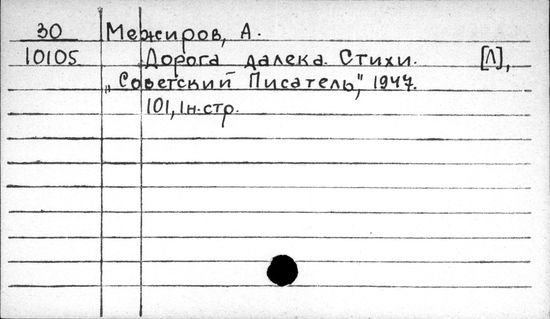 30 Межиров, А.
10105 Дорога далека. Стихи. [Л],
„Советский Писатель", 1947.
101, 1н.стр.